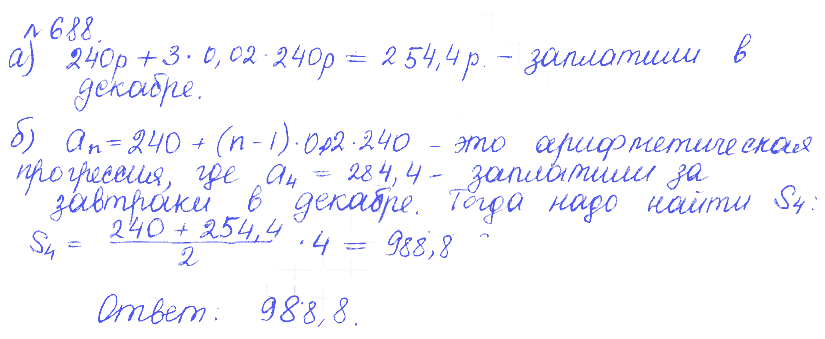 № 688.
а) 240р + 3 · 0,02 · 240р = 254,4р. – заплатили в
декабре.
б) aₙ = 240 + (n – 1) · 0,02 · 240 – это арифметическая
прогрессия, где a₄ = 284,4 – заплатили за
завтраки в декабре. Тогда надо найти S₄:
S₄ = (240 + 254,4)/2 · 4 = 988,8
Ответ: 988,8.